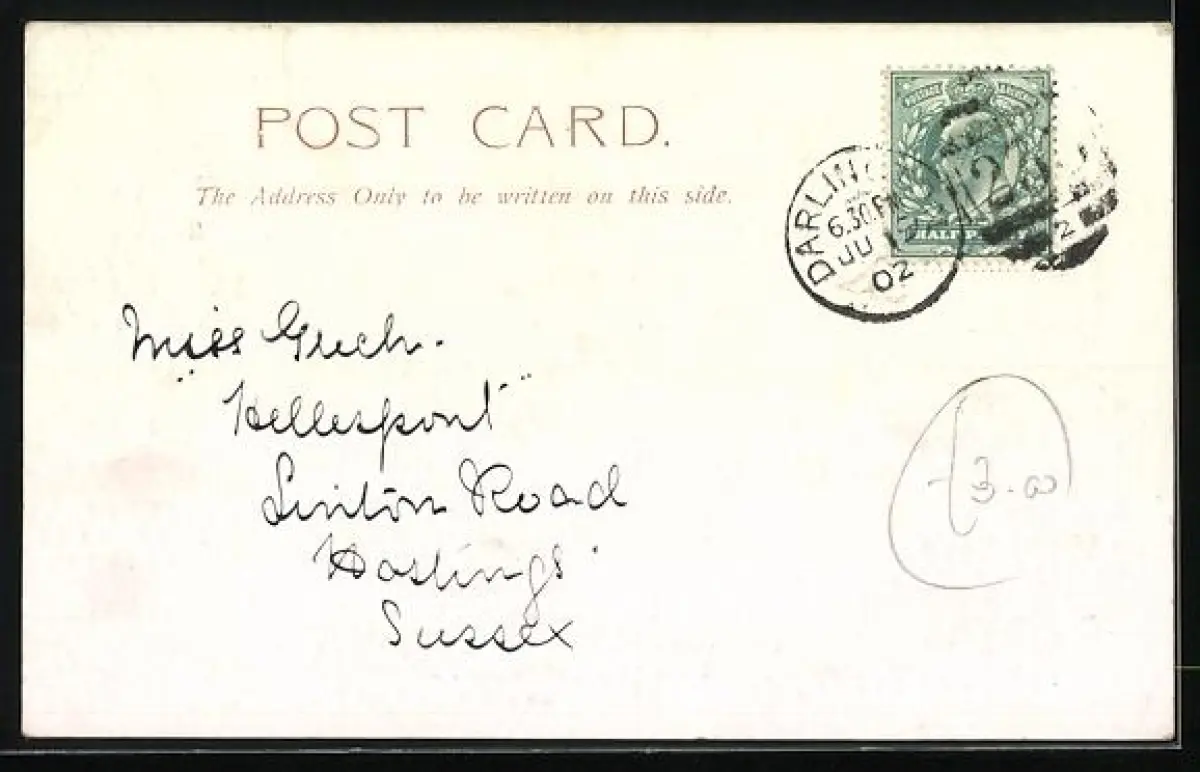 POST CARD.
The Address Only to be written on this side.
DARLING
6.30 PM
JU
02
HALF P
Miss
"Hellespont"
Linton Road
Hastings.
Sussex
3.00